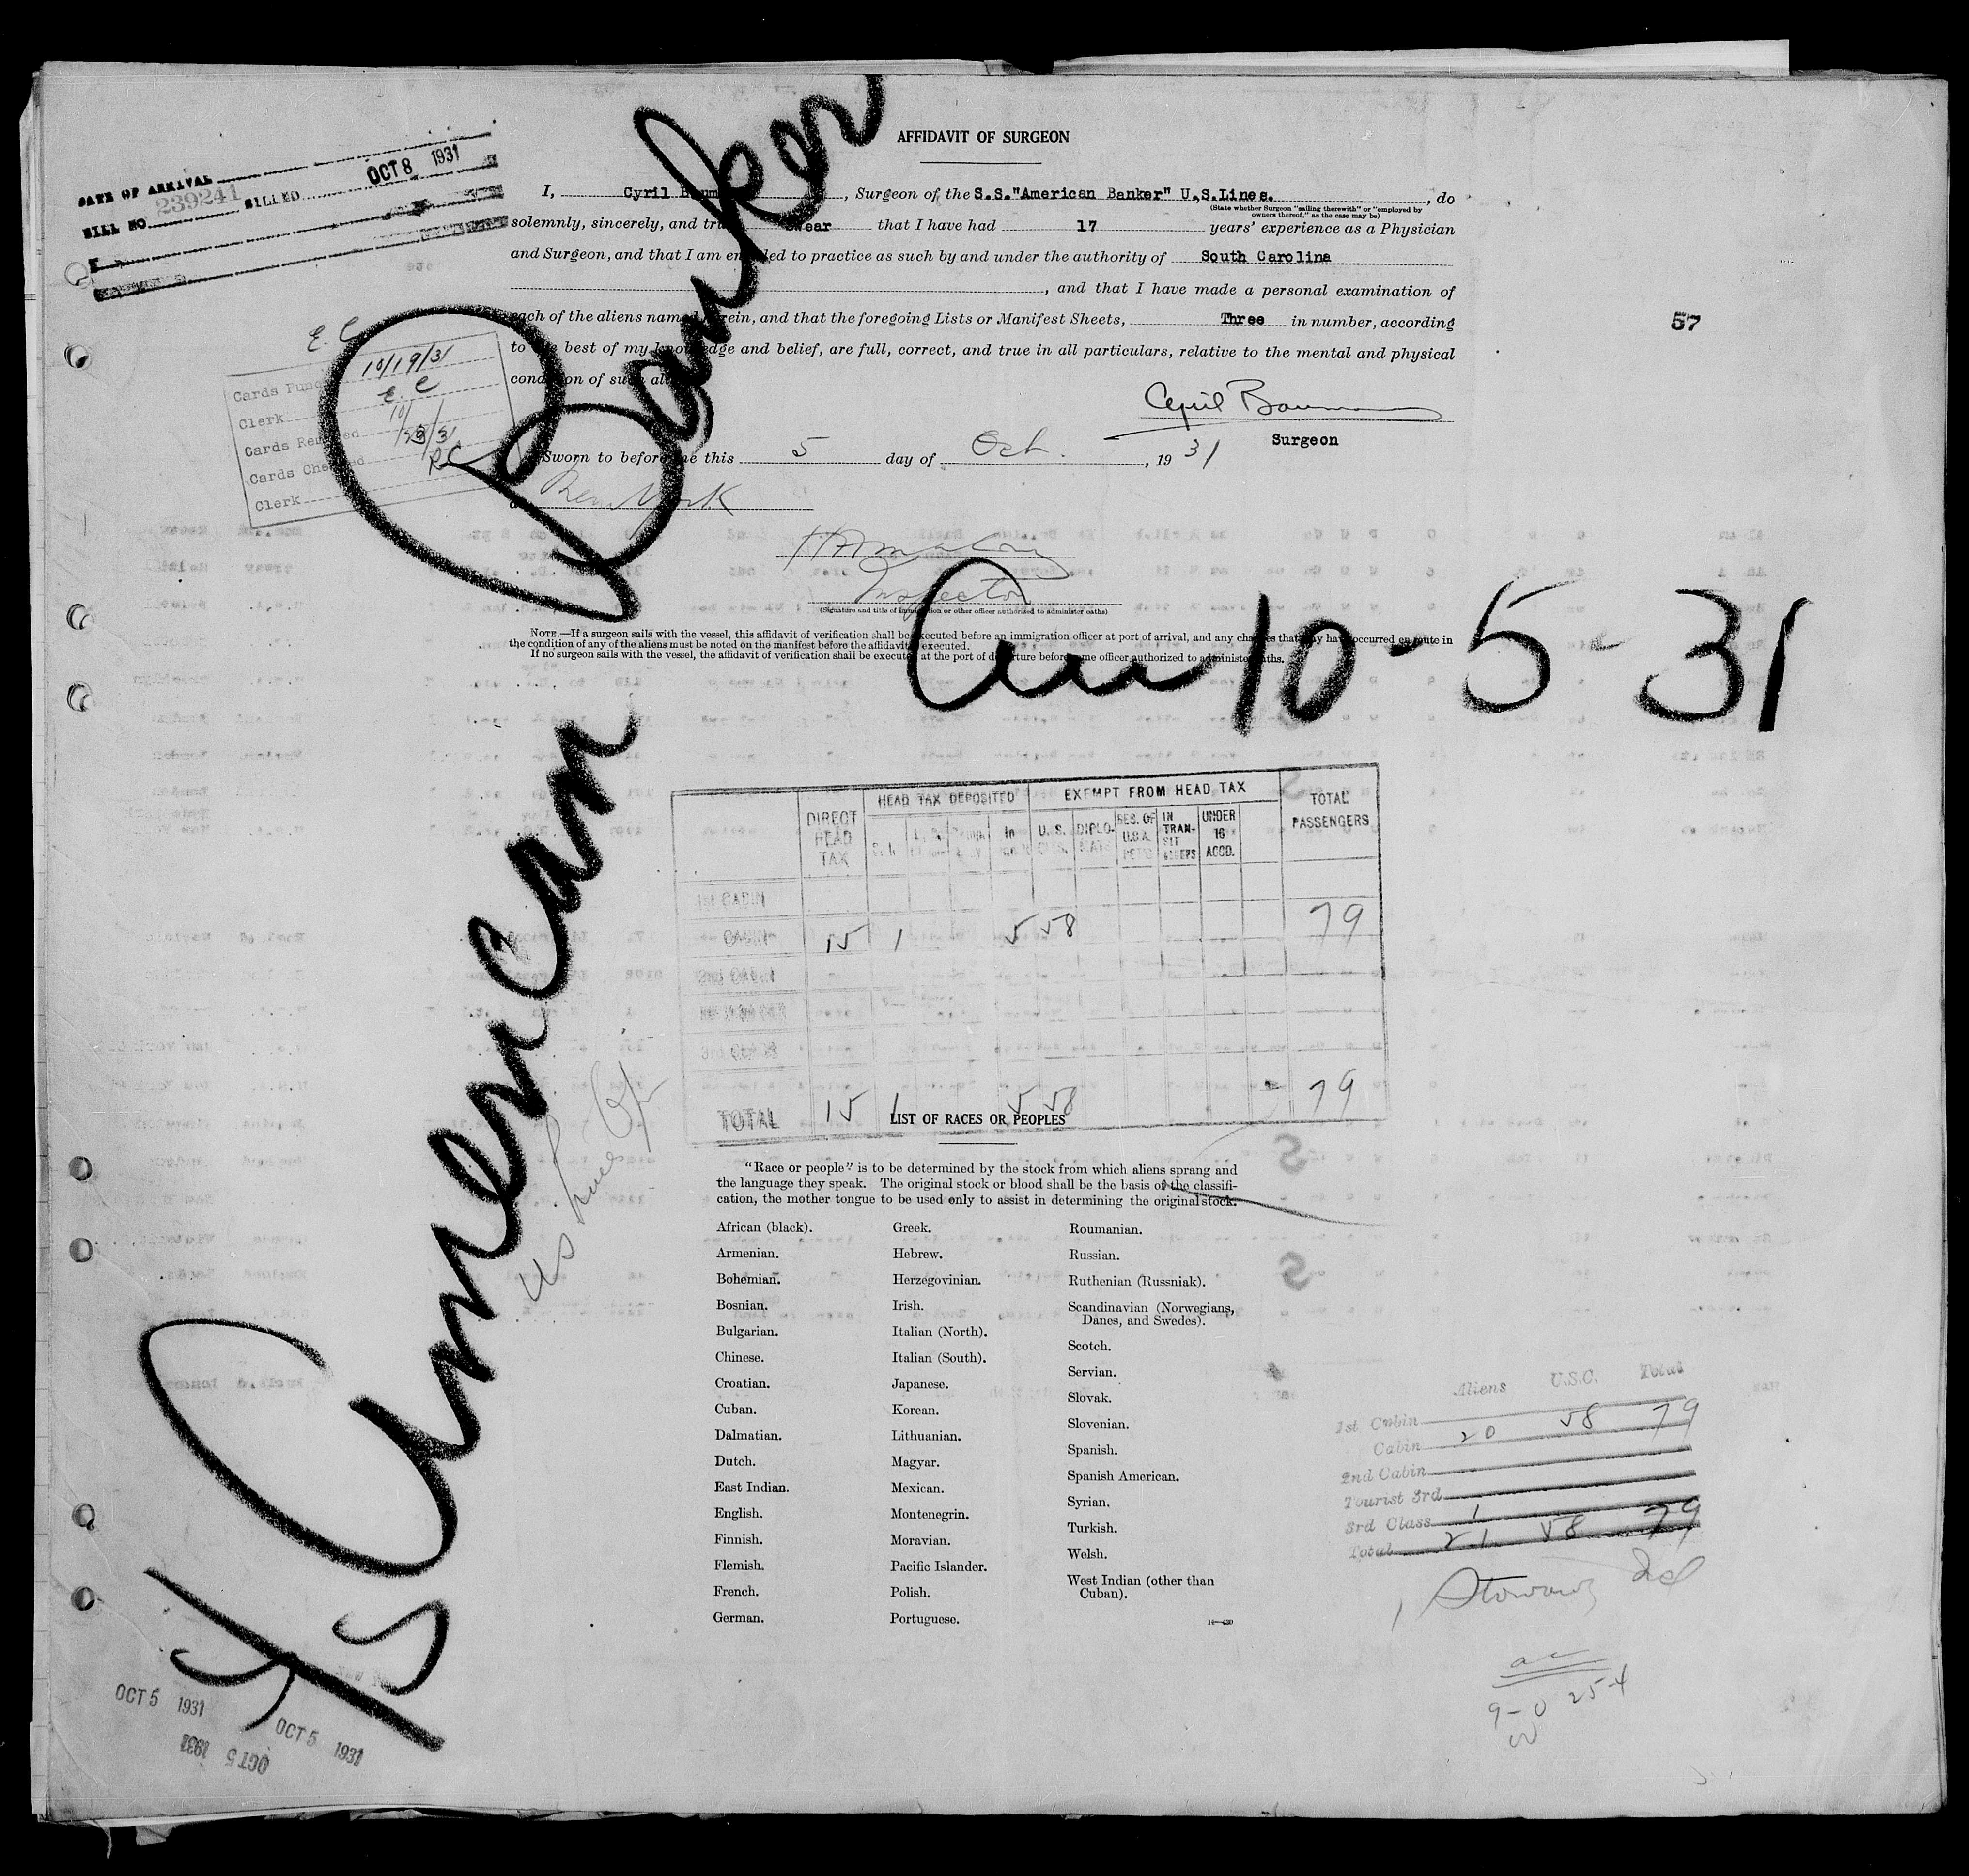 AFFIDAVIT OF SURGEON
DATE OF ARRIVAL
BILL NO. 239241 BILLED OCT 8 1931
I, Cyril , Surgeon of the S.S."American Banker" U.S.Lines. , do
(State whether Surgeon "sailing therewith" or "employed by
owners thereof," as the case may be)
solemnly, sincerely, and swear that I have had 17 years' experience as a Physician
and Surgeon, and that I am entitled to practice as such by and under the authority of South Carolina
, and that I have made a personal examination of
each of the aliens named herein, and that the foregoing Lists or Manifest Sheets, Three in number, according
to the best of my knowledge and belief, are full, correct, and true in all particulars, relative to the mental and physical
condition of such
57
E. C
Cards Punched 10/19/31
Clerk E. C
Cards
Cards Checked
Clerk
Cyril
Surgeon
Sworn to before me this 5 day of Oct. , 1931
New York
Inspector
(Signature and title of immigration or other officer authorized to administer oaths)
NOTE.—If a surgeon sails with the vessel, this affidavit of verification shall be executed before an immigration officer at port of arrival, and any changes that may have occurred en route in
the condition of any of the aliens must be noted on the manifest before the affidavit is executed.
If no surgeon sails with the vessel, the affidavit of verification shall be executed at the port of departure before some officer authorized to administer oaths.
SS American Banker
Arr 10-5-31
DIRECT HEAD TAX HEAD TAX DEPOSITED EXEMPT FROM HEAD TAX TOTAL PASSENGERS
U.S. DIPLO- RES. OF U.S.A. IN TRAN- SIT UNDER 16 ACCD.
1st CABIN
CABIN 15 1 5 58 79
2nd CABIN
3rd CLASS
TOTAL 15 1 5 58 79
US Lines
LIST OF RACES OR PEOPLES
"Race or people" is to be determined by the stock from which aliens sprang and
the language they speak. The original stock or blood shall be the basis of the classifi-
cation, the mother tongue to be used only to assist in determining the original stock.
African (black).
Armenian.
Bohemian.
Bosnian.
Bulgarian.
Chinese.
Croatian.
Cuban.
Dalmatian.
Dutch.
East Indian.
English.
Finnish.
Flemish.
French.
German.
Greek.
Hebrew.
Herzegovinian.
Irish.
Italian (North).
Italian (South).
Japanese.
Korean.
Lithuanian.
Magyar.
Mexican.
Montenegrin.
Moravian.
Pacific Islander.
Polish.
Portuguese.
Roumanian.
Russian.
Ruthenian (Russniak).
Scandinavian (Norwegians,
Danes, and Swedes).
Scotch.
Servian.
Slovak.
Slovenian.
Spanish.
Spanish American.
Syrian.
Turkish.
Welsh.
West Indian (other than
Cuban).
Aliens U.S.C. Total
1st Cabin
Cabin 20 58 79
2nd Cabin
Tourist 3rd
3rd Class 1
Total 21 58 79
OCT 5 1931
OCT 5 1931
OCT 5 1931